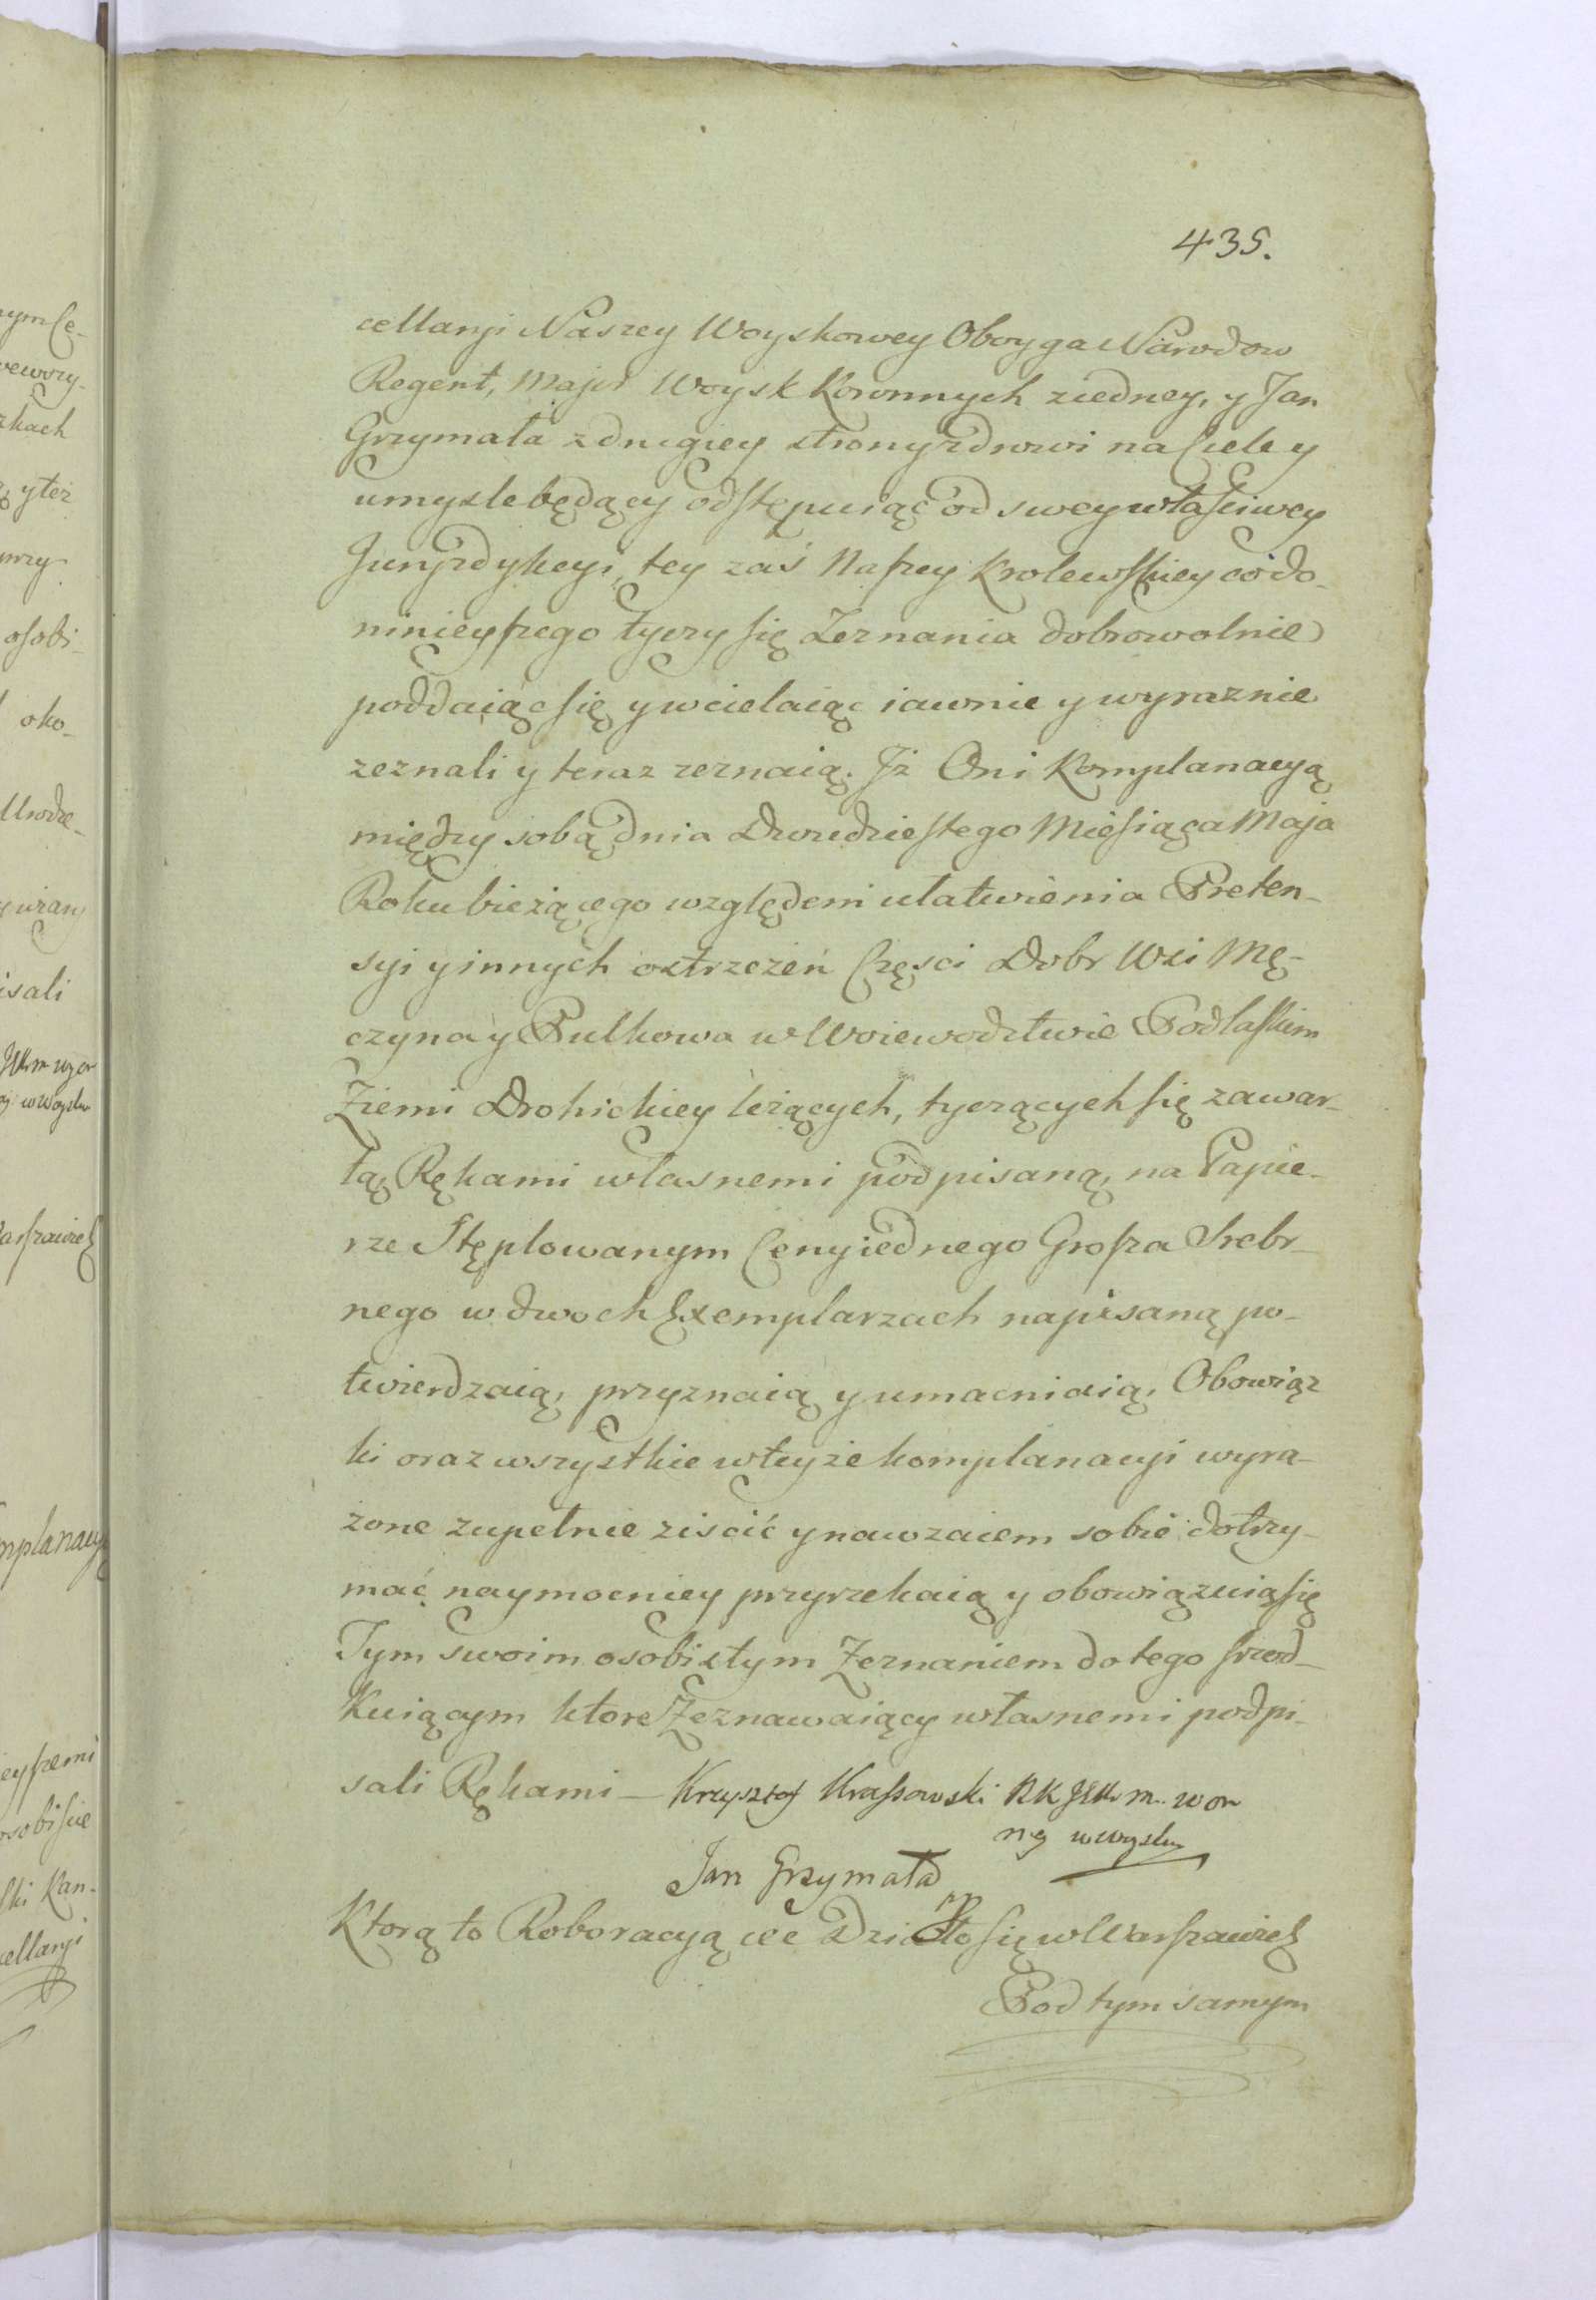 435.
cellaryi Naszey Woyskowey Oboyga Narodow
Regent, Major Woysk Koronnych ziedney, y Jan
Grzymała z drugiey strony zdrowi na Ciele y
umysle będący odstępuiąc od swey właściwey
Juryzdykcyi, tey zaś Naszey Krolewskiey co do-
ninieyszego tyczy się Zeznania dobrowolnie
poddaiąc się y wcielaiąc iawnie y wyraznie
zeznali y teraz zeznaią. Jż Oni Komplanacyą
między sobą dnia Dwudziestego Miesiąca Maja
Roku bieżącego względem ułatwienia Preten-
syi y innych ostrzezeń Częsci Dobr Wsi Mę-
czyna y Pulkowa w Woiewodztwie Podlaskim
Ziemi Drohickiey leżących, tyczących się zawar-
tą, Rękami własnemi podpisaną, na Papie-
rze Stęplowanym Ceny iednego Grosza Srebr-
nego w dwoch Exemplarzach napisaną po-
twierdzaią, przyznaią y umacniaią, Obowiąz
ki oraz wszystkie w teyże komplanacyi wyra-
żone zupełnie ziscić y nawzaiem sobie dotrzy-
mać naymocniey przyrzekaią y obowiązuią się
Tym swoim osobistym Zeznaniem do tego srzod-
kuiącym ktore Zeznawaiący własnemi podpi-
sali Rękami — Krzysztof Krassowski RK m. wor
ny
Jan Grzymała
mp
Ktorą to Roboracyą etc Działo się w Warszawie
Pod tym samym